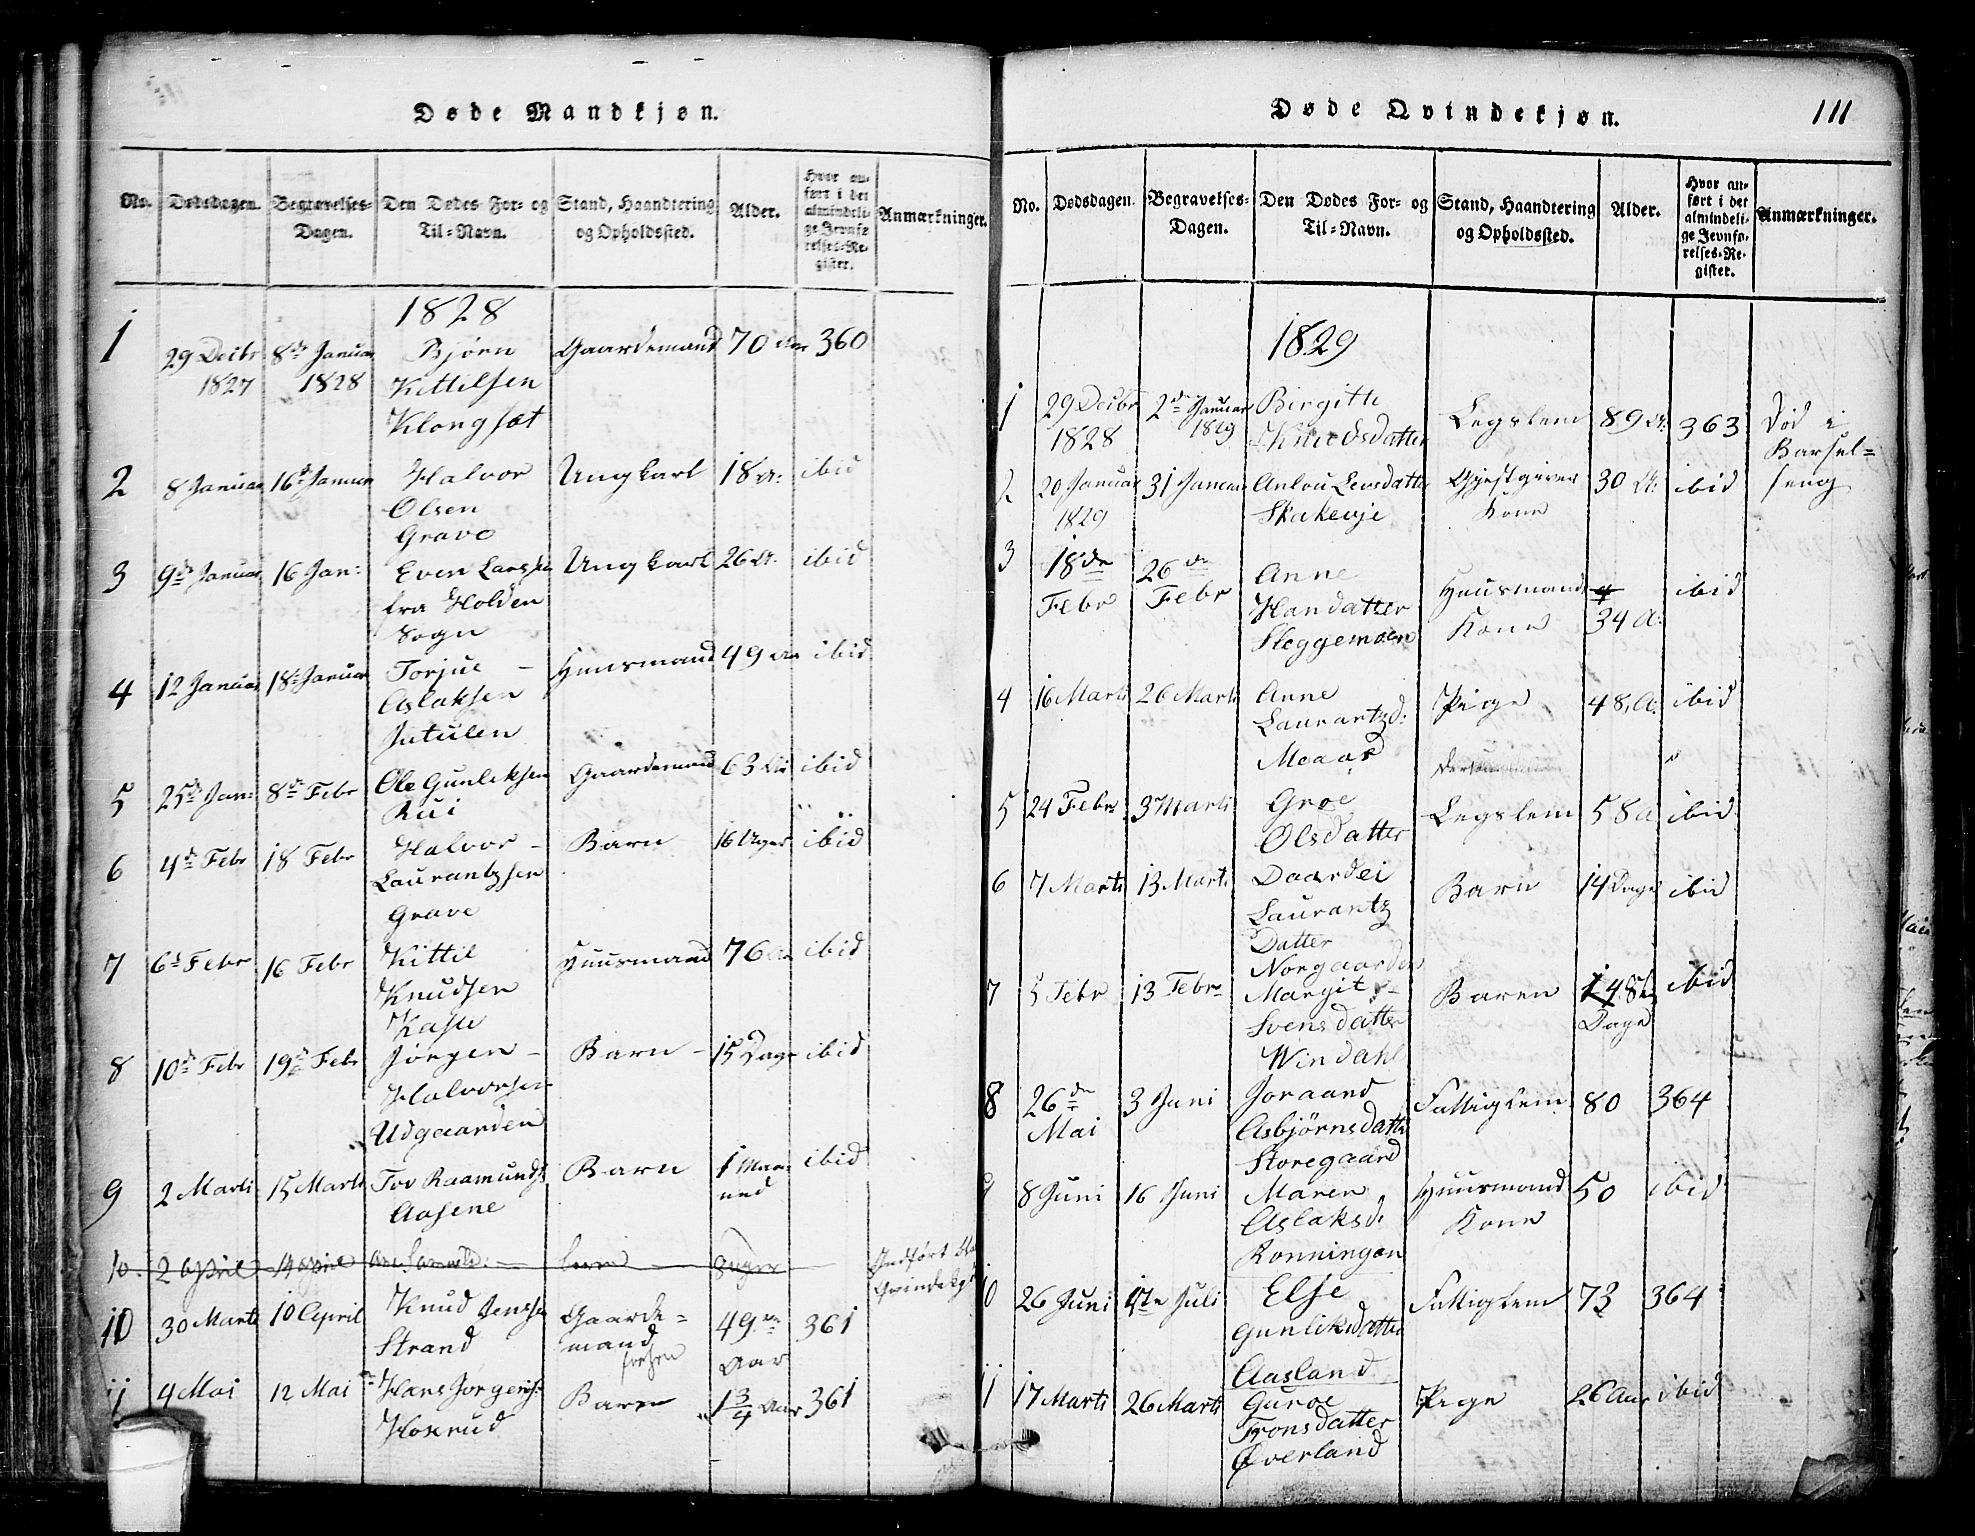 Døde Mandkjøn.
No. Dødsdagen. Begravelses-Dagen. Den Dødes For- og Til-Navn. Stand, Haandtering og Opholdssted. Alder. Hvor anført i det almindelige Jevnførelses-Register. Anmærkninger.
1828
1 29 Decbr 1827 8de Januar 1828 Bjørn Kittilsen Klongsæt Gaardemand 70 Aar 360
2 8 Januar 16de Januar Halvor Olsen Grave Ungkarl 18 A: ibid
3 9de Januar 16 Jan: Even Larsen fra Holden Sogn Ungkarl 26 A. ibid
4 12 Januar 18 Januar Torjus Aslaksen Jutulen Huusmand 49 Aar ibid
5 25de Jan: 8de Febr Ole Gunleksen Rui Gaardemand 63 ibid
6 4de Febr 18 Febr Halvor Laurantzsen Grave Barn 16 Uger ibid
7 6te Febr 16 Febr Kittil Knudsen Kasin Huusmand 76 Aar ibid
8 10de Febr 19de Febr Jørgen Halvorsen Udgaarden Barn 15 Dage ibid
9 2 Marti 15 Marti Tov Raamunds: Aasene Barn 1 Maaned ibid
10. 2 April 14 April 8 Uger Indført Qvindekj
10 30 Marti 10 April Knud Jensen Strand Gaardemand 49 Aar 361
11 4 Mai 12 Mai Hans Jørgens: Hoserud Baren 1 3/4 Aar 361
Døde Qvindekjøn.
111
No. Dødsdagen. Begravelses-Dagen. Den Dødes For- og Til-Navn. Stand, Haandtering og Opholdssted. Alder. Hvor anført i det almindelige Jevnførelses-Register. Anmærkninger.
1829
1 29 Decbr 1828 2de Januar 1829 Birgitte Knudsdatter Legslem 89 A. 363
2 20 Januar 1829 31 Januar Anlou Levsdatter Skakeuje Gjestgiver Kone 30 A: ibid Død i Barselseng
3 18de Febr 26de Febr Anne Handatter Steggemoen Huusmands Kone 34 A. ibid
4 16 Marti 26 Marti Anne Laurantzd: Moaas Pige 48. A. ibid
5 24 Febr 3 Marti Groe Olsdatter Legslem 58 A ibid
6 7 Marti 13 Marti Daardei Laurantz Datter Norgaarden Barn 14 Dage ibid
7 5 Febr 13 Febr Margit Svensdatter Windahl Baren Dage ibid
8 26de Mai 3 Juni Joraand Asbjørnsdatter Storegaard Fattiglem 80 364
9 8 Juni 16 Juni Maren Aslaksd. Ronningen Huusmand Kone 50 ibid
10 26 Juni 1ste Juli Else Gunliksdatter Aasland Fattiglem 73 364
11 17 Marti 26 Marti Guroe Tronsdatter Øverland Pige 26 Aar ibid